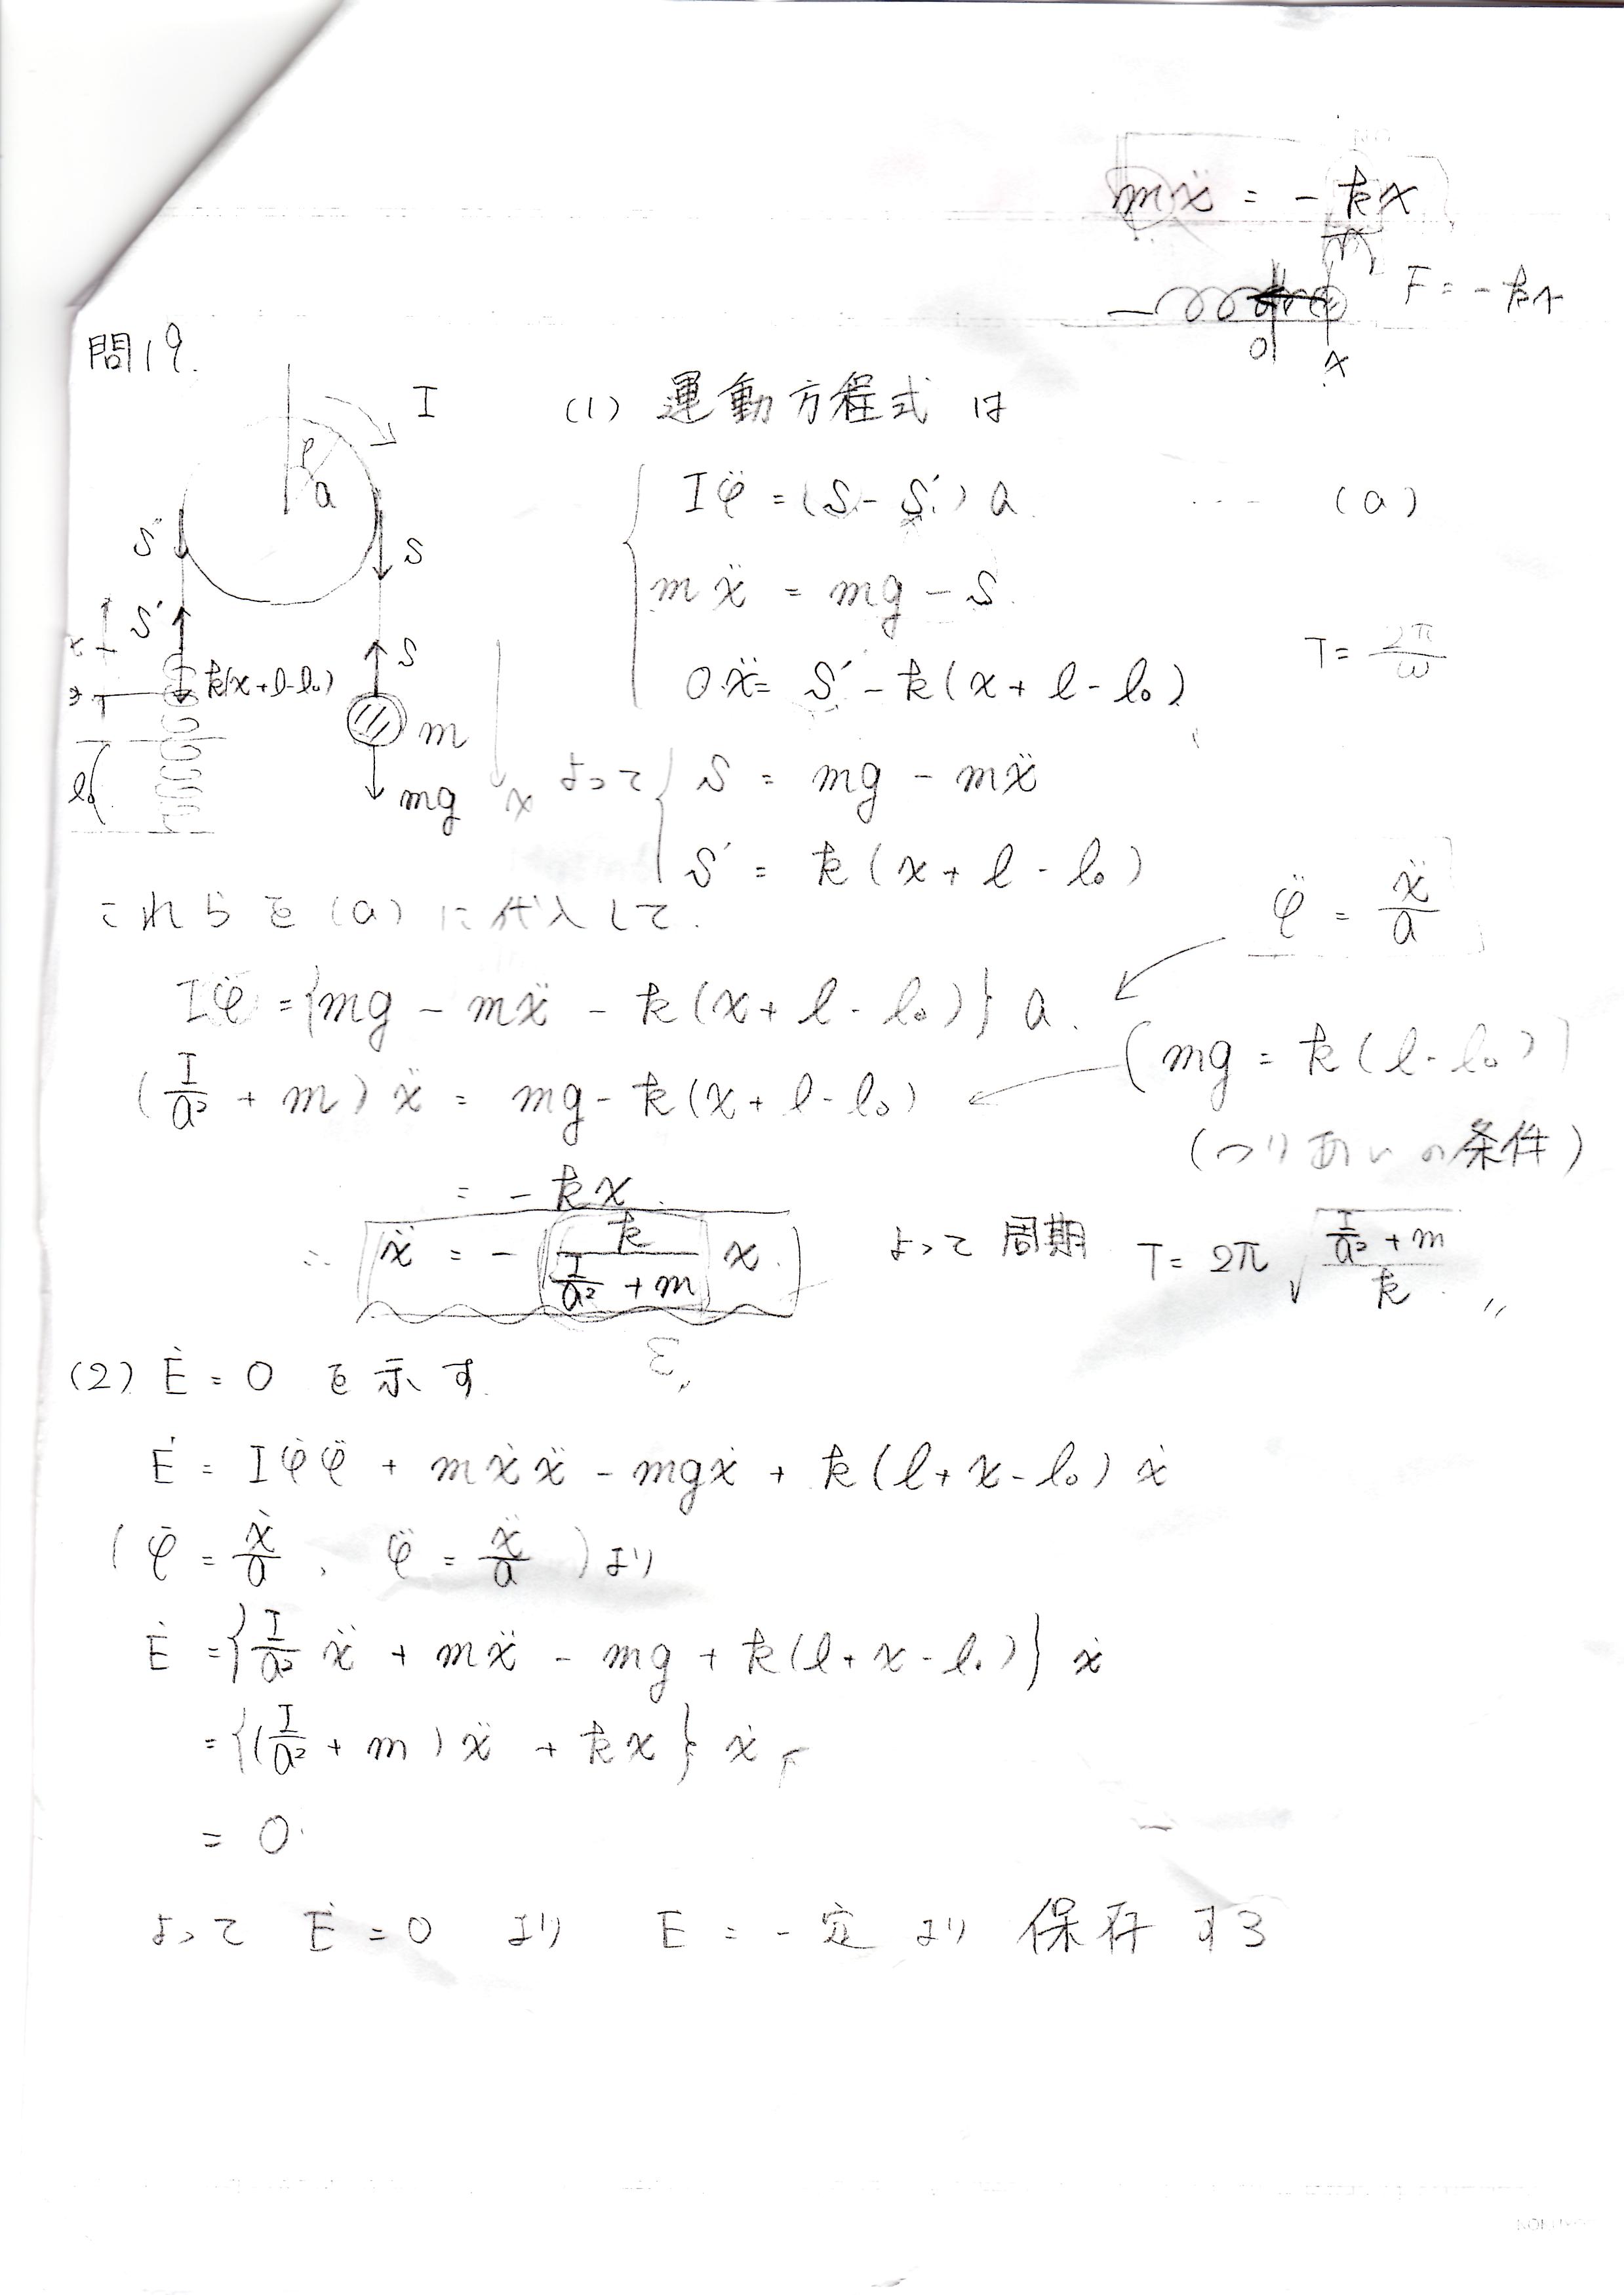 mẍ = - kx
F = - kx
O x
問19.
I
φ
a
S' S
S' S
k(x+l-l₀)
m
l₀
mg x
(1) 運動方程式は
Iφ̈ = (S - S') a ... (a)
mẍ = mg - S
0·ẍ = S' - k(x + l - l₀)
T = 2π/ω
よって S = mg - mẍ
S' = k(x + l - l₀)
これらを(a)に代入して.
φ̈ = ẍ/a
Iφ̈ = {mg - mẍ - k(x + l - l₀)} a.
(mg = k(l - l₀))
(I/a² + m) ẍ = mg - k(x + l - l₀)
(つりあいの条件)
= - kx.
∴ ẍ = - k/(I/a² + m) x.
よって 周期 T = 2π √((I/a² + m)/k) 〃
(2) Ė = 0 を示す.
Ė = Iφ̇φ̈ + mẋẍ - mgẋ + k(l + x - l₀) ẋ
(φ̇ = ẋ/a , φ̈ = ẍ/a ) より
Ė = {I/a² ẍ + mẍ - mg + k(l + x - l₀)} ẋ
= {(I/a² + m) ẍ + kx} ẋ
= 0.
よって Ė = 0 より E = 一定 より 保存する